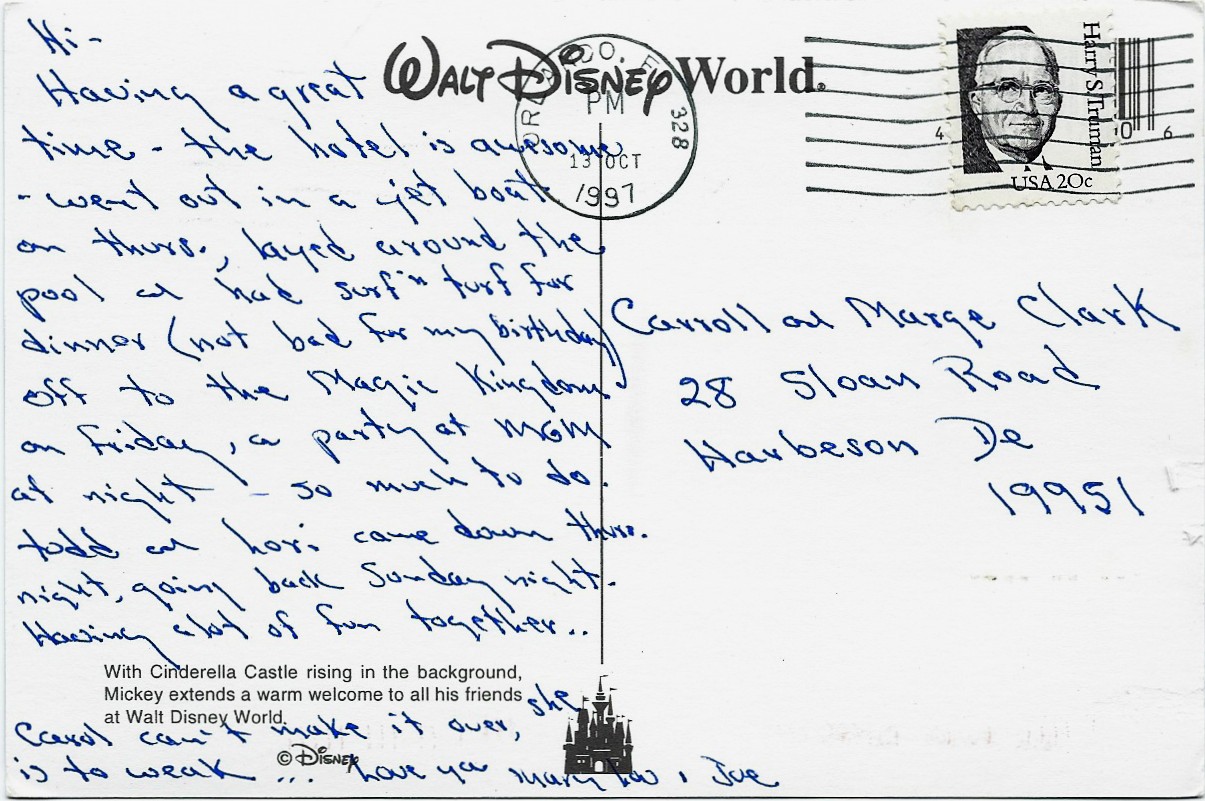 Hi-
Having a great
time - the hotel is awesome
- went out in a jet boat
on thurs., layed around the
pool an had surf 'n turf for
dinner (not bad for my birthday)
off to the Magic Kingdom
on Friday, a party at MGM
at night - so much to do.
todd an Lori came down thurs.
night, going back Sunday night.
Having alot of fun together..
With Cinderella Castle rising in the background,
Mickey extends a warm welcome to all his friends
at Walt Disney World.
Carol can't make it over, she
is to weak ... Love ya Mary Lou, Joe
© Disney
Walt Disney World.
ORLANDO, FL 328
PM
13 OCT
1997
Harry S. Truman
USA 20c
4 0 6
Carroll an Marge Clark
28 Sloan Road
Harbeson De
19951